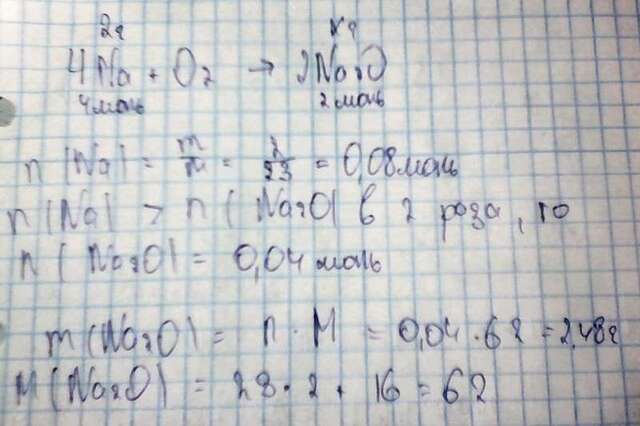 2г xг
4Na + O2 → 2Na2O
4моль 2моль
n(Na) = m/M = 2/23 = 0,08моль
n(Na) > n(Na2O) в 2 раза, то
n(Na2O) = 0,04моль
m(Na2O) = n · M = 0,04 · 62 = 2,48г
M(Na2O) = 23 · 2 + 16 = 62